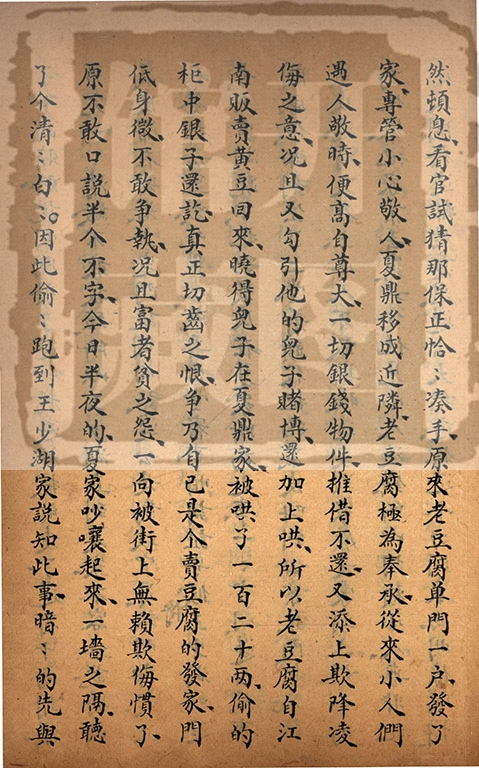 然頓息、看官試猜那保正恰〻湊手、原來老豆腐单門一户、發了
家、專管小心敬人、夏鼎移成近隣、老豆腐極為奉承、從來小人們
遇人敬時、便髙自尊大、一切銀錢物件、推借不還、又添上欺降凌
侮之意、况且又勾引他的兒子賭博、還加上哄、所以老豆腐自江
南販賣黄豆回來、曉得兒子在夏鼎家、被哄了一百二十两、偷的
柜中銀子還訖、真正切齒之恨、争乃自己是个賣豆腐的發家、門
低身微、不敢争執、况且富者貧之怨、一向被街上無賴欺侮慣了、
原不敢口説半个不字、今日半夜的、夏家吵嚷起來、一墻之隔、聽
了个清〻白〻。因此偷〻跑到王少湖家説知此事、暗〻的先與